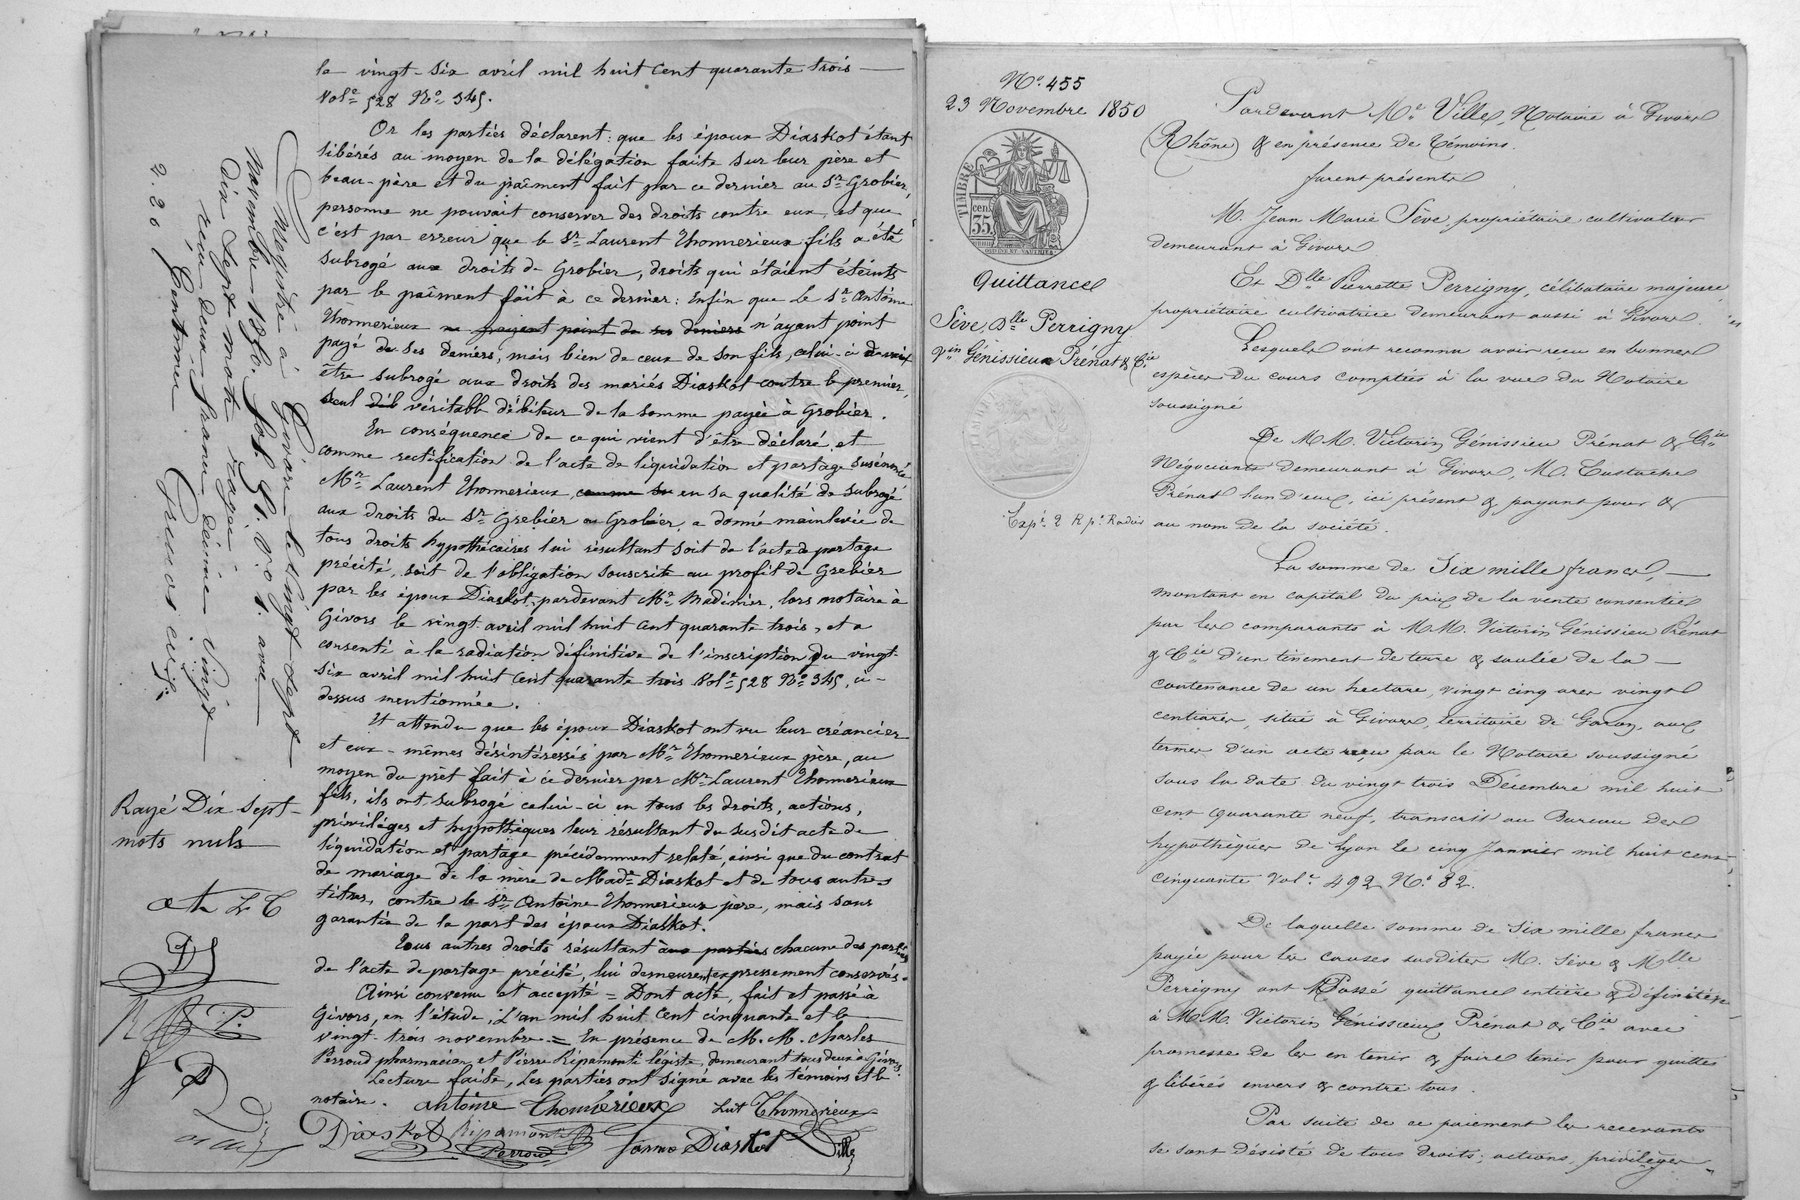 le vingt-six avril mil huit cent quarante trois —
Vol.e 528 No. 345.
Or les parties déclarent: que les époux Diaskot étant
libérés au moyen de la délégation faite sur leur père et
beau-père et du paîment fait par ce dernier au Sr. Grobier,
personne ne pouvait conserver des droits contre eux, et que
c'est par erreur que le Sr. Laurent Thonnerieux fils a été
subrogé aux droits de Grobier, droits qui étaient éteints
par le paîment fait à ce dernier: Enfin que le Sr. Antoine
Thonnerieux ne payant point de ses deniers n'ayant point
payé de ses deniers, mais bien de ceux de son fils, celui-ci devait
être subrogé aux droits des mariés Diaskot contre le premier,
seul déb véritable débiteur de la somme payée à Grobier.
En conséquence de ce qui vient d'être déclaré et
comme rectification de l'acte de liquidation et partage susénoncé
Mr. Laurent Thonnerieux comme su en sa qualité de subrogé
aux droits du Sr. Grebier ou Grobier, a donné mainlevée de
tous droits hypothécaires lui résultant soit de l'acte de partage
précité, soit de l'obligation souscrite au profit de Grebier
par les époux Diaskot, pardevant Me. Madinier, lors notaire à
Givors le vingt avril mil huit cent quarante trois, et a
consenti à la radiation définitive de l'inscription du vingt-
six avril mil huit cent quarante trois Vol.e 528 No. 345, ci-
dessus mentionnée.
Et attendu que les époux Diaskot ont vu leur créancier
et eux-mêmes désintéressés par Mr. Thonnerieux père, au
moyen du prêt fait à ce dernier par Mr. Laurent Thonnerieux
fils, ils ont subrogé celui-ci en tous les droits, actions,
priviléges et hypothèques leur résultant du susdit acte de
liquidation et partage précédemment relaté, ainsi que du contrat
de mariage de la mère de Made. Diaskot et de tous autres
titres, contre le Sr. Antoine Thonnerieux père, mais sans
garantie de la part des époux Diaskot.
Tous autres droits résultant aux parties chacune des parties
de l'acte de partage précité, lui demeurent expressement conservés.
Ainsi convenu et accepté = Dont acte, fait et passé à
Givors, en l'étude, L'an mil huit cent cinquante et le
vingt-trois novembre. = En présence de M.M. Charles
Perroud pharmacien et Pierre Ripamonti légiste, demeurant tous deux à Givors.
Lecture faite, les parties ont signé avec les témoins et le
notaire. Antoine Thonnerieux Lnt Thonnerieux
Diaskot Ripamonti Perroud Diaskot Ville
Enregistré à Givors le vingt-sept
Novembre 1850. fol. 91. V.o avec
dix sept mots rayés
reçu deux francs, décime vingt
2.20 Centimes
Rayé Dix sept
mots nuls
at L T
D
R P.
No. 455
23 Novembre 1850
TIMBRE
cen.
35
Quittance
Sève, Dlle Perrigny
Vin Génissieux Prénat & Cie
Pardevant Me. Ville, Notaire à Givors
(Rhône) & en présence de témoins.
furent présents
M. Jean Marie Sève, propriétaire cultivateur
demeurant à Givors
Et Dlle Pierrette Perrigny, célibataire majeure,
propriétaire cultivatrice demeurant aussi à Givors.
Lesquels ont reconnu avoir reçu en bonnes
espèces du cours comptées à la vue du Notaire
soussigné
De MM. Victorin Génissieu Prénat & Cie
Négociants demeurant à Givors, M. Eustache
Prénat l'un d'eux, ici présent & payant pour &
au nom de la société.
La somme de Six mille francs, —
montant en capital du prix de la vente consentie
par les comparants à M.M. Victorin Génissieu Prénat
& Cie d'un tènement de terre & saulée de la —
contenance de un hectare, vingt cinq ares vingt
centiares, situé à Givors, territoire de Garon, aux
termes d'un acte reçu par le Notaire soussigné
sous la date du vingt trois Décembre mil huit
cent quarante neuf, transcrit au Bureau des
hypothèques de Lyon le cinq Janvier mil huit cent
cinquante Vol.e 492 No. 82.
De laquelle somme de Six mille francs
payée pour les causes susdites M. Sève & Mlle
Perrigny ont passé quittance entière & définitive
à MM. Victorin Génissieux Prénat & Cie avec
promesse de les en tenir & faire tenir pour quittes
& libérés envers & contre tous.
Par suite de ce paiement les recevants
se sont désisté de tous droits, actions, privilèges